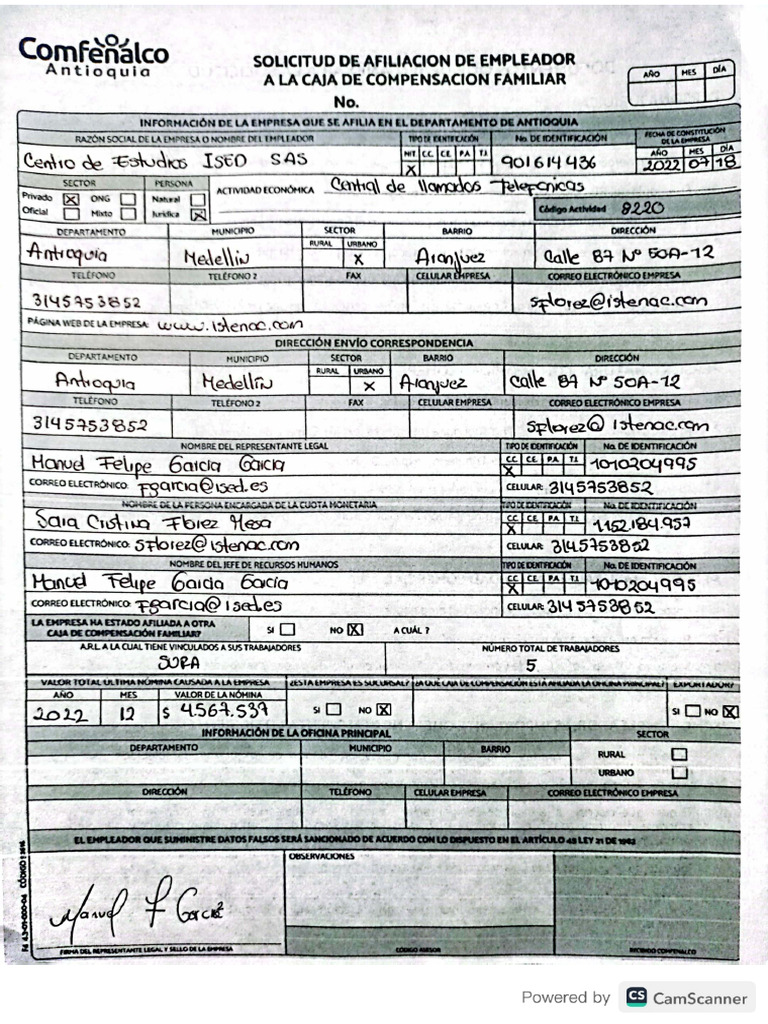 Comfenalco
Antioquia
SOLICITUD DE AFILIACION DE EMPLEADOR
A LA CAJA DE COMPENSACION FAMILIAR
No.
AÑO MES DÍA
INFORMACIÓN DE LA EMPRESA QUE SE AFILIA EN EL DEPARTAMENTO DE ANTIOQUIA
RAZÓN SOCIAL DE LA EMPRESA O NOMBRE DEL EMPLEADOR TIPO DE IDENTIFICACIÓN No. DE IDENTIFICACIÓN FECHA DE CONSTITUCIÓN DE LA EMPRESA
NIT C.C. C.E. P.A. T.I. AÑO MES DÍA
Centro de Estudios ISED SAS X 901614436 2022 07 18
SECTOR PERSONA ACTIVIDAD ECONÓMICA Central de llamadas Telefonicas
Privado X ONG Natural
Oficial Mixto Jurídica X Código Actividad 8220
DEPARTAMENTO MUNICIPIO SECTOR BARRIO DIRECCIÓN
RURAL URBANO
Antioquia Medellin X Aranjuez Calle 87 Nº 50A-12
TELÉFONO TELÉFONO 2 FAX CELULAR EMPRESA CORREO ELECTRÓNICO EMPRESA
3145753852 sflorez@istenac.com
PÁGINA WEB DE LA EMPRESA: www.istenac.com
DIRECCIÓN ENVÍO CORRESPONDENCIA
DEPARTAMENTO MUNICIPIO SECTOR BARRIO DIRECCIÓN
RURAL URBANO
Antioquia Medellin X Aranjuez Calle 87 Nº 50A-12
TELÉFONO TELÉFONO 2 FAX CELULAR EMPRESA CORREO ELECTRÓNICO EMPRESA
3145753852 sflorez@istenac.com
NOMBRE DEL REPRESENTANTE LEGAL TIPO DE IDENTIFICACIÓN No. DE IDENTIFICACIÓN
Manuel Felipe Garcia Garcia C.C. C.E. P.A. T.I. X 1010204995
CORREO ELECTRÓNICO: fgarcia@ised.es CELULAR: 3145753852
NOMBRE DE LA PERSONA ENCARGADA DE LA CUOTA MONETARIA TIPO DE IDENTIFICACIÓN No. DE IDENTIFICACIÓN
Sara Cristina Florez Mesa C.C. C.E. P.A. T.I. X 1152.184.957
CORREO ELECTRÓNICO: sflorez@istenac.com CELULAR: 3145753852
NOMBRE DEL JEFE DE RECURSOS HUMANOS TIPO DE IDENTIFICACIÓN No. DE IDENTIFICACIÓN
Manuel Felipe Garcia Garcia C.C. C.E. P.A. T.I. X 1010204995
CORREO ELECTRÓNICO: Fgarcia@ised.es CELULAR: 3145753852
LA EMPRESA HA ESTADO AFILIADA A OTRA
CAJA DE COMPENSACIÓN FAMILIAR? SI NO X A CUÁL ?
A.R.L A LA CUAL TIENE VINCULADOS A SUS TRABAJADORES NÚMERO TOTAL DE TRABAJADORES
SURA 5
VALOR TOTAL ULTIMA NÓMINA CAUSADA A LA EMPRESA ¿ESTA EMPRESA ES SUCURSAL? ¿A QUE CAJA DE COMPENSACIÓN ESTÁ AFILIADA LA OFICINA PRINCIPAL? EXPORTADOR?
AÑO MES VALOR DE LA NÓMINA
2022 12 $ 4.567.537 SI NO X SI NO X
INFORMACIÓN DE LA OFICINA PRINCIPAL SECTOR
DEPARTAMENTO MUNICIPIO BARRIO RURAL
URBANO
DIRECCIÓN TELÉFONO CELULAR EMPRESA CORREO ELECTRÓNICO EMPRESA
EL EMPLEADOR QUE SUMINISTRE DATOS FALSOS SERÁ SANCIONADO DE ACUERDO CON LO DISPUESTO EN EL ARTÍCULO 45 LEY 21 DE 1982
OBSERVACIONES
Manuel F Garcia
FIRMA DEL REPRESENTANTE LEGAL Y SELLO DE LA EMPRESA CÓDIGO ASESOR RECIBIDO COMFENALCO
Powered by CS CamScanner